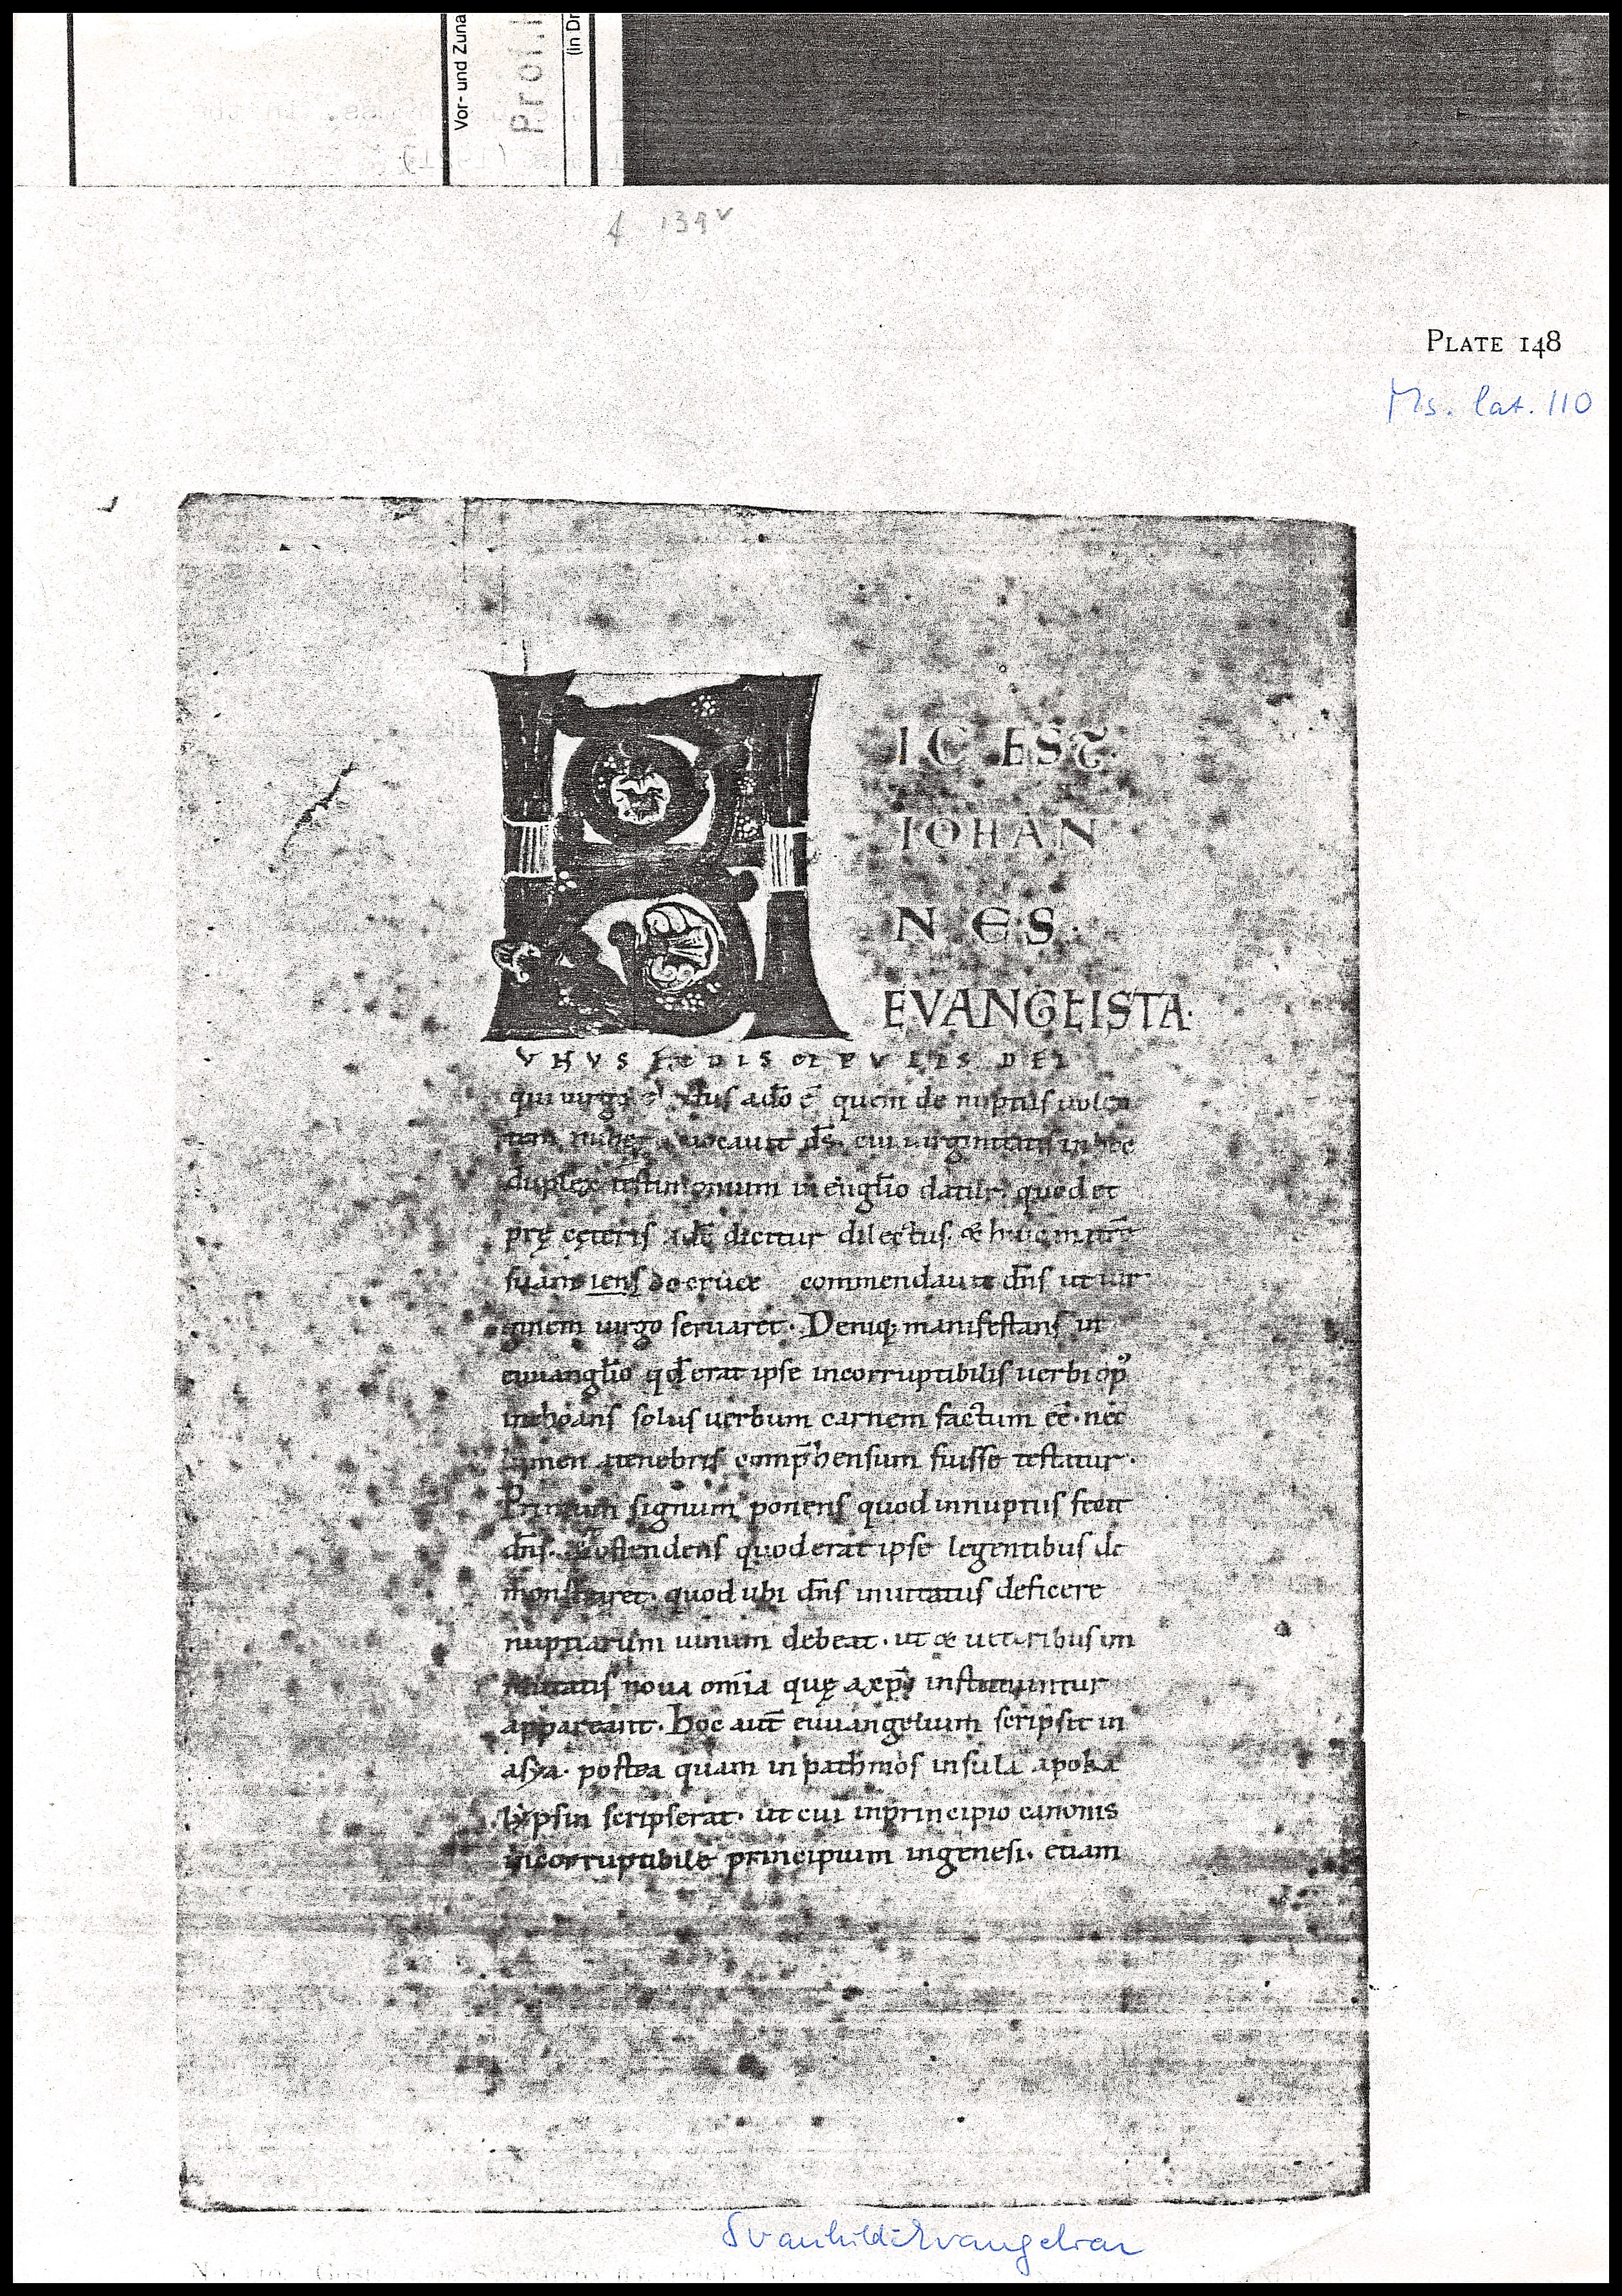 Vor- und Zuna
(in Dr
f 139v
PLATE 148
Ms. lat. 110
IC EST
IOHAN
NES
EVANGELISTA·
VNVS EX DISCIPVLIS DEI
qui uirgo ado ē quem de nuptiis uolen
uocauit dS. cui uirginitatis in hoc
duplex testimonium in euuglio datur. quod et
pre ceteris dicitur dilectus. & huic matrē
suam iens de cruce commendauit dns ut uir
ginem uirgo seruaret. Deniq; manifestans in
euuanglio qd erat ipse incorruptibilis uerbi op'
inchoans solus uerbum carnem factum eē. nec
lumen tenebris comphensum fuisse testatur.
Primum signum ponens quod innuptiis fecit
dns. ostendens quod erat ipse legentibus de
monstraret. quod ubi dns inuitatus deficere
nuptiarum uinum debeat. ut & ueteribus im
mutatis noua omia que axpo instituuntur
appareant. Hoc aut euuangelium scripsit in
asya. postea quam in pathmos insula apoka
lypsin scripserat. ut cui inprincipio canonis
incorruptibile principium ingenesi. etiam
Svanhild-Evangeliar